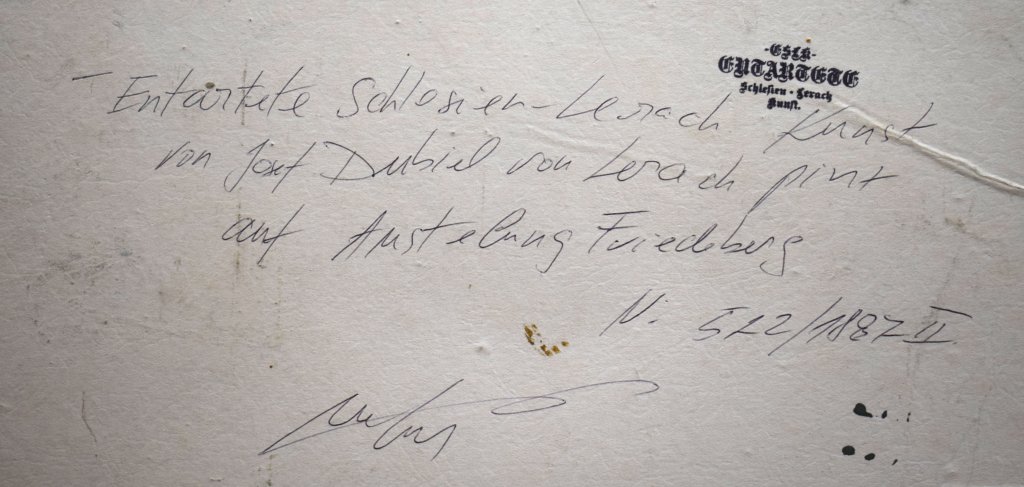 -ESLK-
ENTARTETE
Schlesien · Lerach
Kunst.
- Entartete Schlesien-Lerach Kunst
von Josef Dubiel von Lerach pinx
auf Austelung Friedeberg
N. 522/1887 II